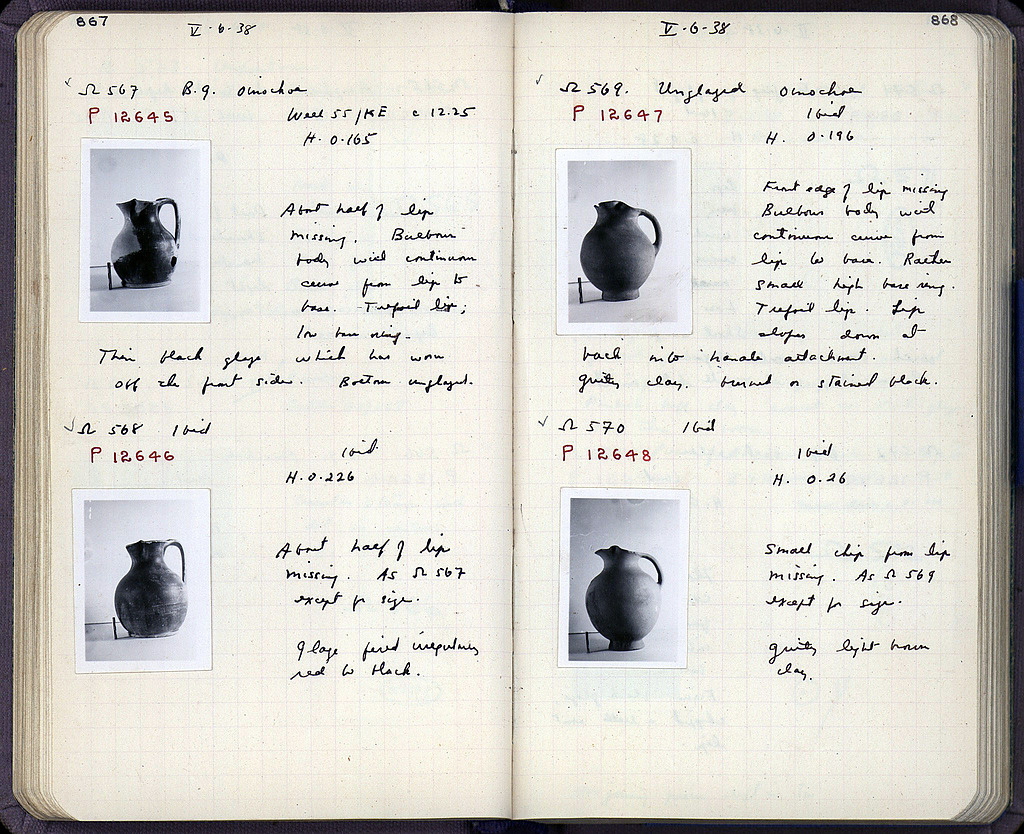 867
V·6·38
✓ Ω 567 B.g. oinochoe
P 12645
Well 55/KE c 12.25
H. 0.165
About half of lip
missing. Bulbous
body with continuous
curve from lip to
base. Trefoil lip;
low base ring.
Thin black glaze which has worn
off the front side. Bottom unglazed.
✓ Ω 568 Ibid
P 12646
ibid
H. 0.226
About half of lip
missing. As Ω 567
except for size.
Glaze fired irregularly
red to black.
868
V·6·38
✓ Ω 569. Unglazed oinochoe
P 12647
Ibid
H. 0.196
Front edge of lip missing
Bulbous body with
continuous curve from
lip to base. Rather
small high base ring.
Trefoil lip. Lip
slopes down at
back into handle attachment.
gritty clay. burned or stained black.
✓ Ω 570 Ibid
P 12648
Ibid
H. 0.26
Small chip from lip
missing. As Ω 569
except for size.
gritty light brown
clay.